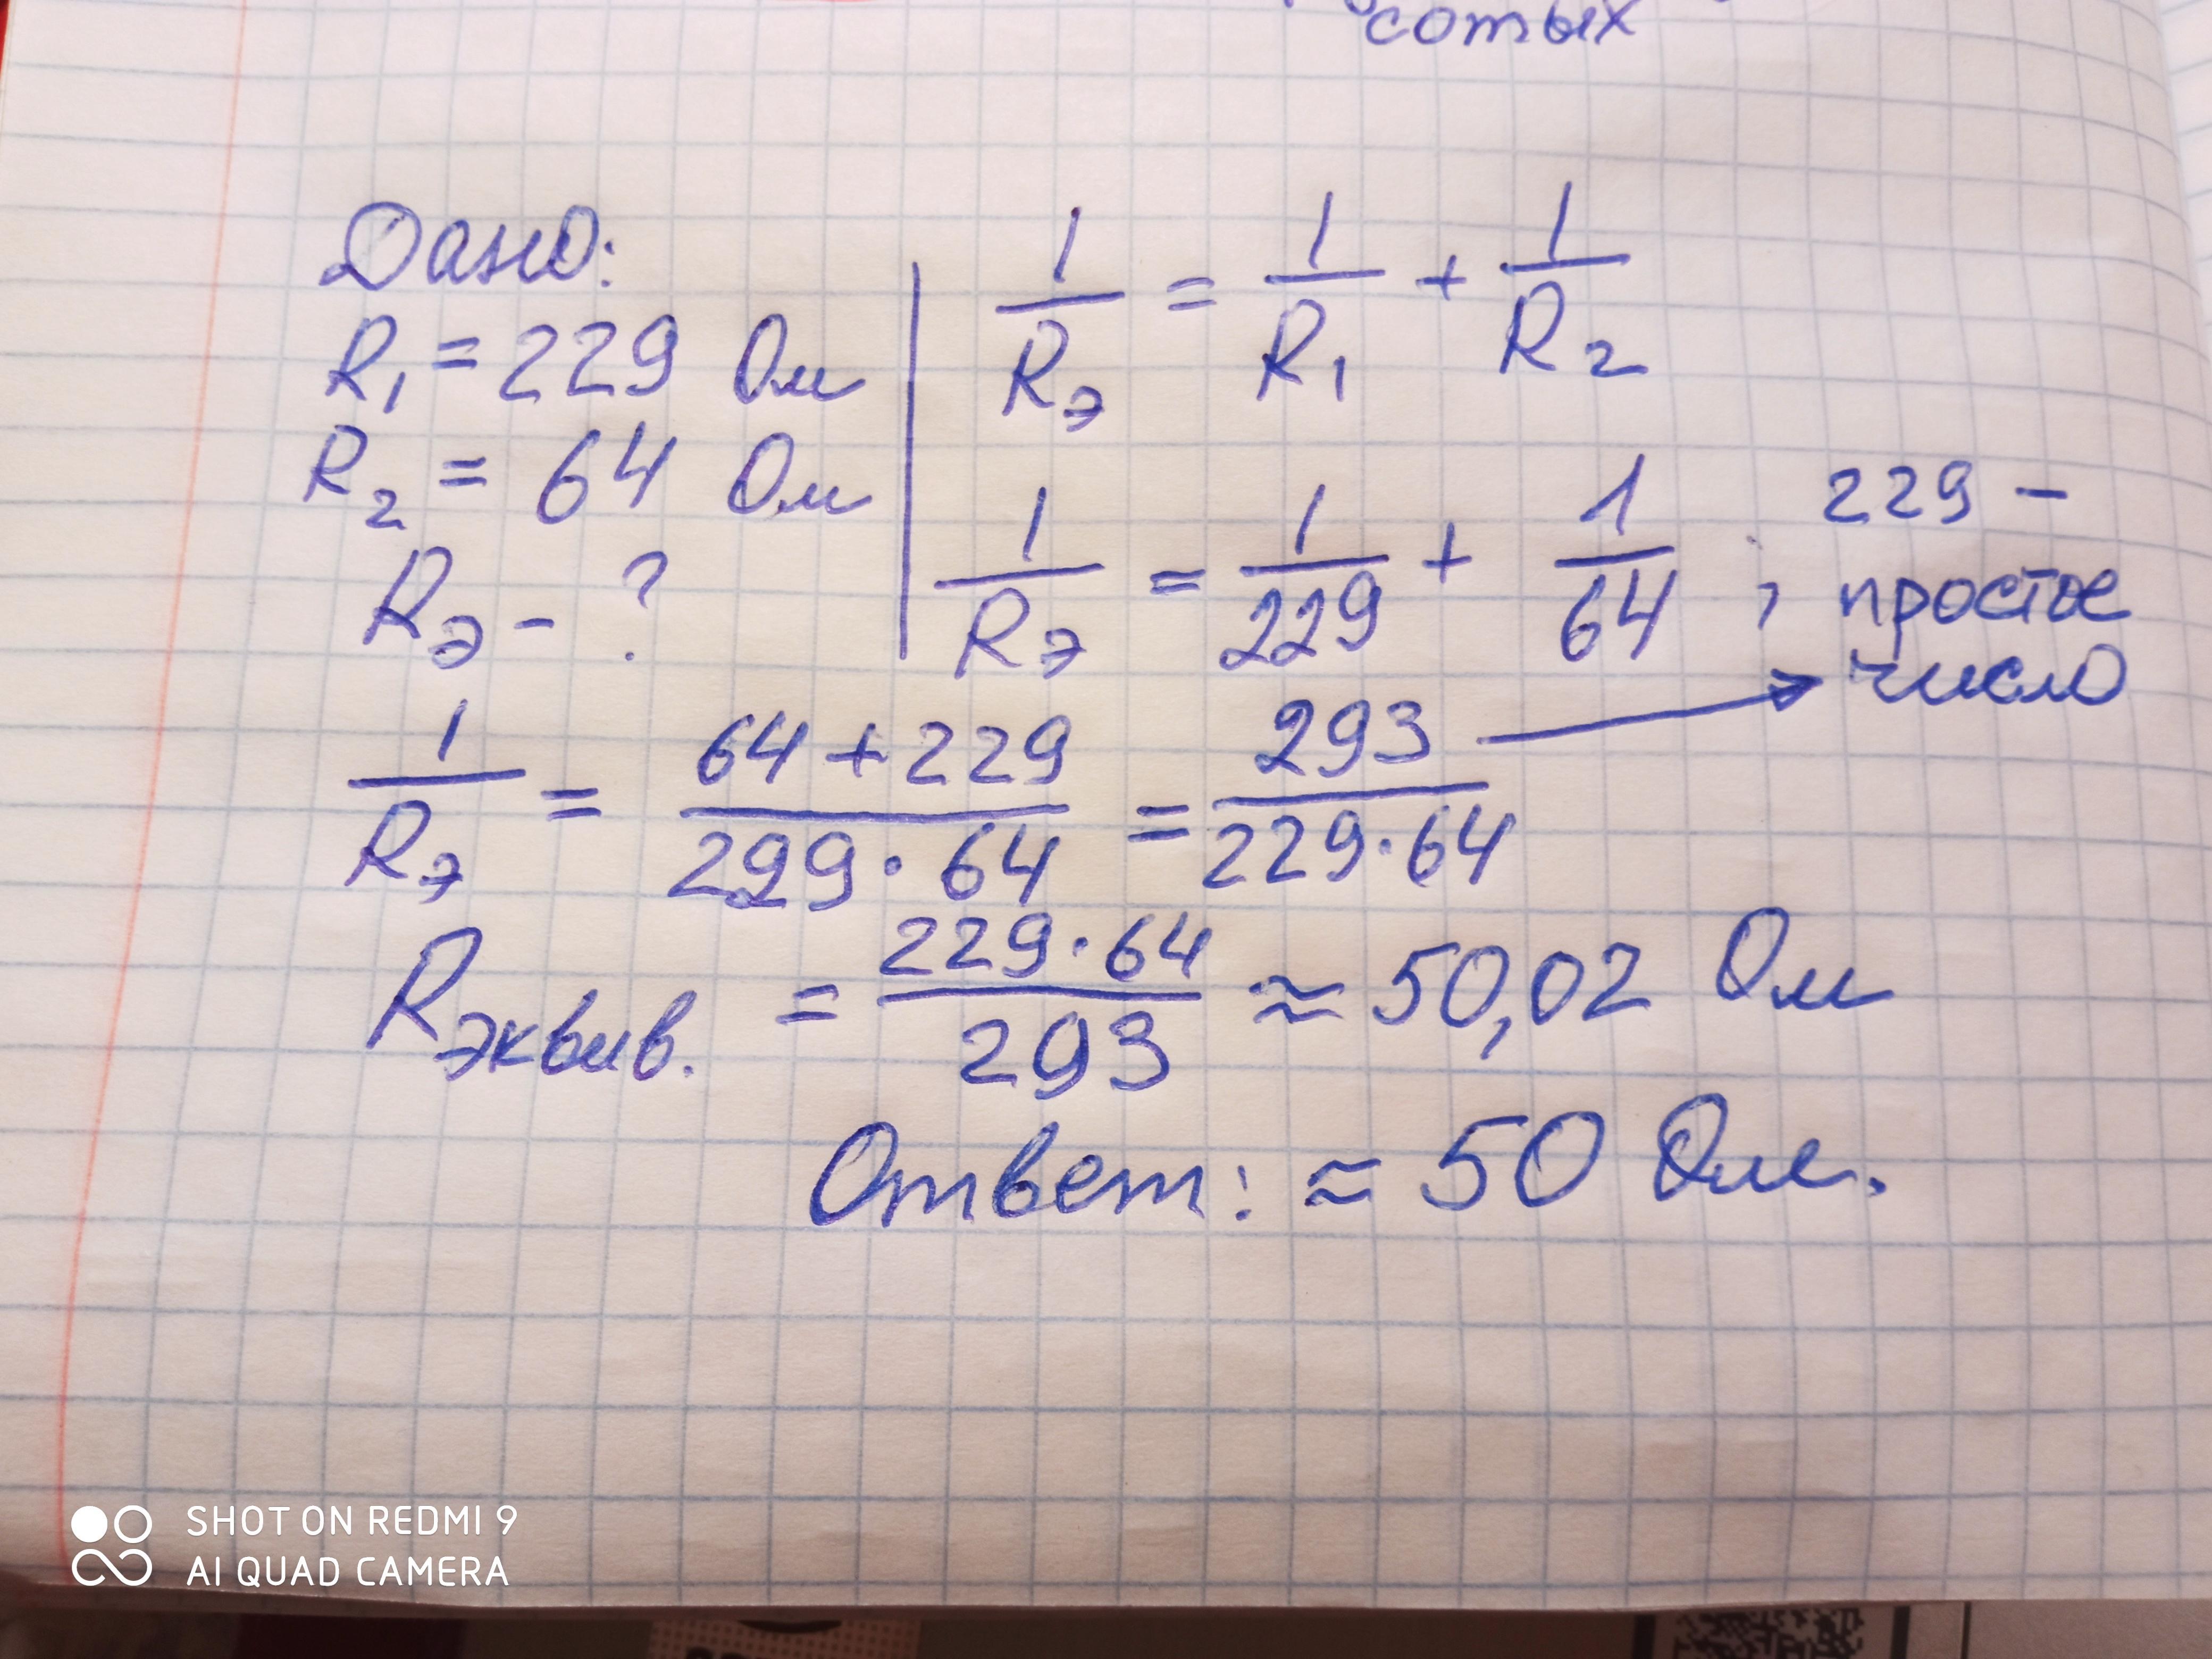 сотых
Дано:
R₁ = 229 Ом
R₂ = 64 Ом
Rэ - ?
1/Rэ = 1/R₁ + 1/R₂
1/Rэ = 1/229 + 1/64 ; 229 -
простое
число
1/Rэ = (64 + 229)/(299 · 64) = 293/(229 · 64)
Rэквив. = (229 · 64)/293 ≈ 50,02 Ом
Ответ: ≈ 50 Ом.
SHOT ON REDMI 9
AI QUAD CAMERA